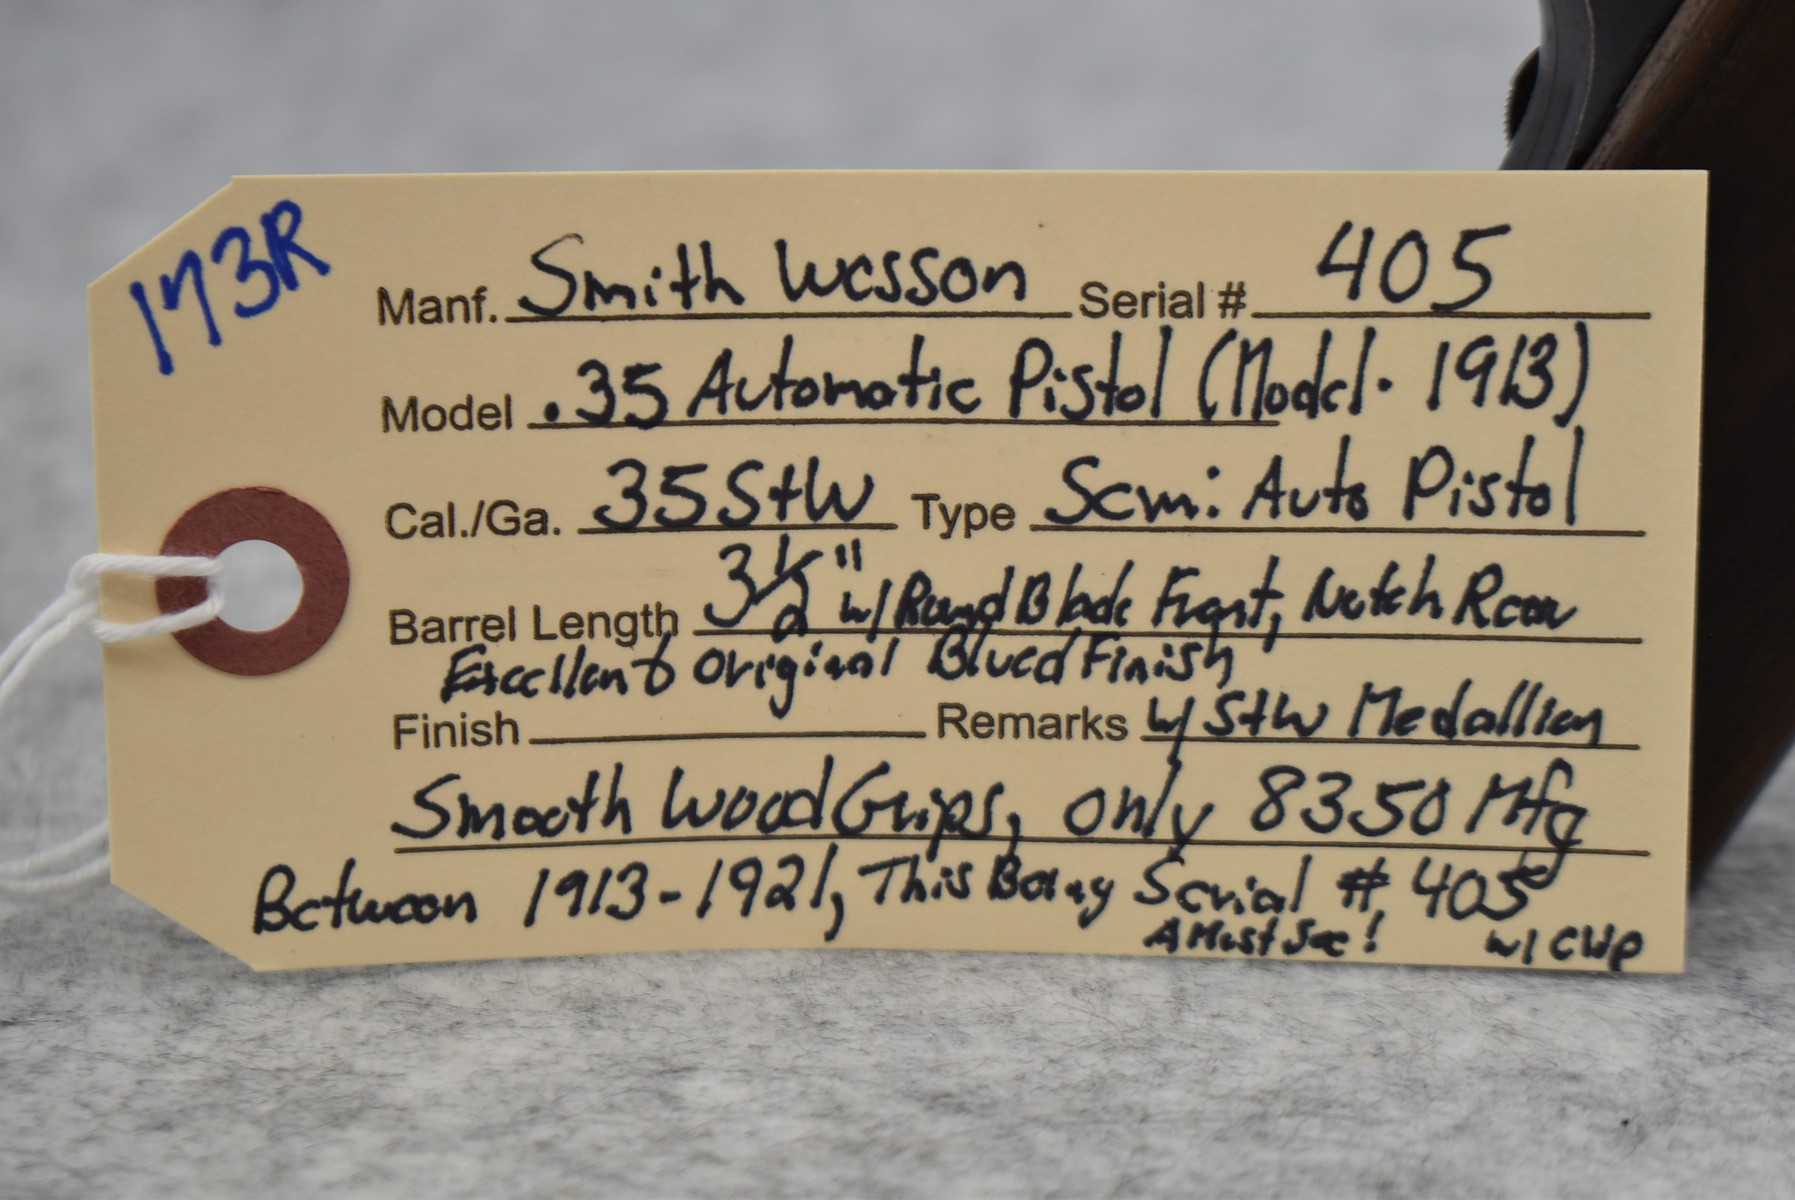 173R
Manf. Smith Wesson Serial # 405
Model .35 Automatic Pistol (Model. 1913)
Cal./Ga. 35 S+W Type Semi Auto Pistol
Barrel Length 3 1/2" w/ Round Blade Front, Notch Rear
Excellent Original Blued Finish
Finish Remarks w/ S+W Medallion
Smooth Wood Grips, only 8350 Mfg
Between 1913-1921, This Being Serial # 405
A Must See! w/ CWP